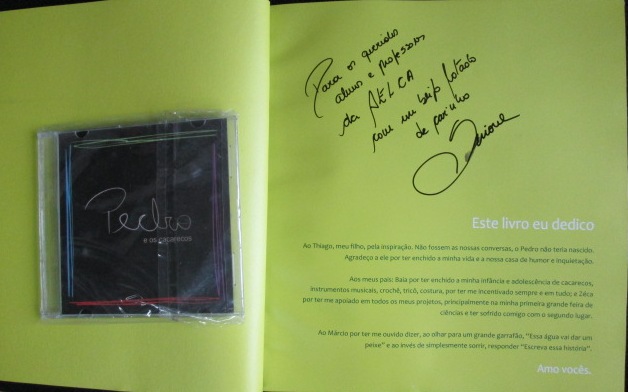 Pedro
e os cacarecos
Para os queridos
alunos e professores
da AELCA
com um beijo lotado
de carinho
Este livro eu dedico
Ao Thiago, meu filho, pela inspiração. Não fossem as nossas conversas, o Pedro não teria nascido.
Agradeço a ele por ter enchido a minha vida e a nossa casa de humor e inquietação.
Aos meus pais: Baía por ter enchido a minha infância e adolescência de cacarecos,
instrumentos musicais, crochê, tricô, costura, por ter me incentivado sempre e em tudo; e Zéca
por ter me apoiado em todos os meus projetos, principalmente na minha primeira grande feira de
ciências e ter sofrido comigo com o segundo lugar.
Ao Márcio por ter me ouvido dizer, ao olhar para um grande garrafão, "Essa água vai dar um
peixe" e ao invés de simplesmente sorrir, responder "Escreva essa história".
Amo vocês.